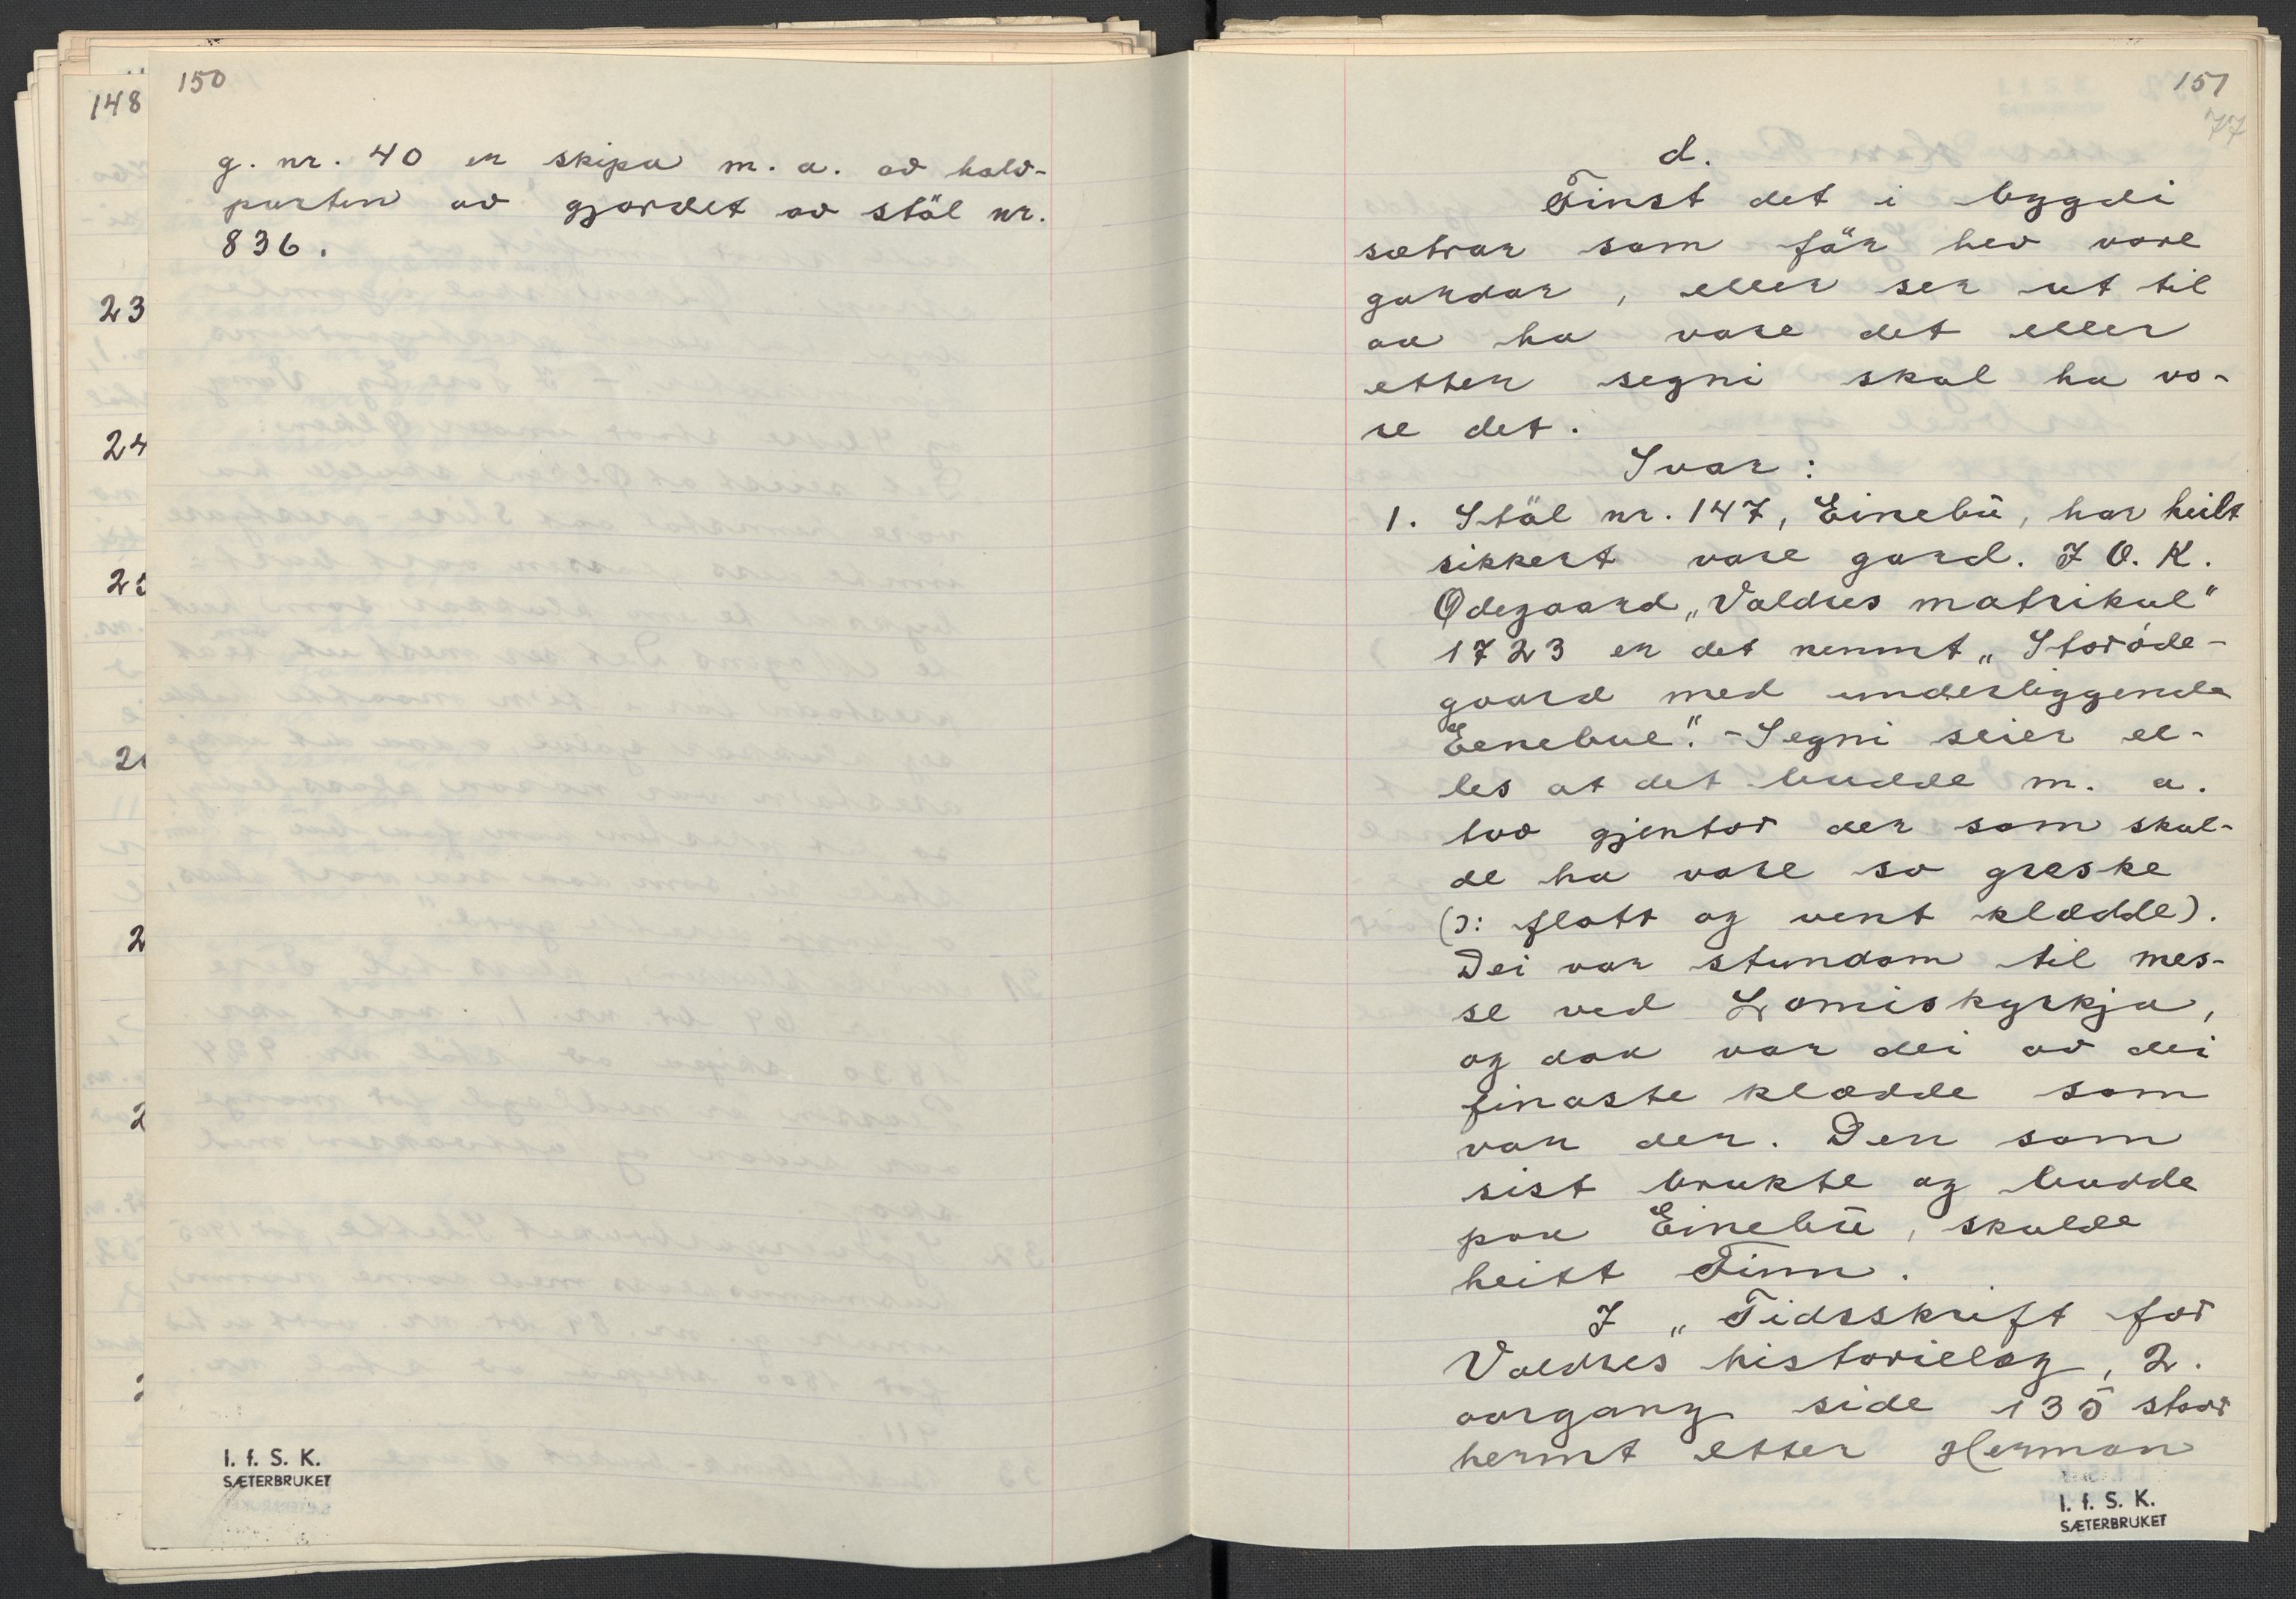 150
148
g. nr. 40 er skipa m. a. av halv-
parten av gjordet av stöl nr.
836.
23
24
2
2
2
I. f. S. K.
SÆTERBRUKET
151
77
d.
Finst det i bygdi
sætrar som fyr hev vore
gardar, eller ser ut til
aa ha vore det eller
etter segni skal ha vo-
re det.
Svar:
1. Stöl nr. 147, Einebü, har heilt
sikkert vore gard. I O. K.
Ødegaard „Valdres matrikul"
1723 er det nemnt „Storöde-
gaard med underliggende
Eenebue". - Segni seier el-
les at det budde m. a.
tvo gjentor der som skul-
de ha vore so greske
(ɔ: flott og vent klædde).
Dei var stundom til mes-
se ved Lomiskyrkja,
og daa var dei av dei
finaste klædde som
var der. Den som
sist brukte og budde
paa Einebü, skulde
heitt Finn.
I „Tidsskrift for
Valdres historielag, 2.
aargang side 135 staar
hermt etter Herman
I. f. S. K.
SÆTERBRUKET